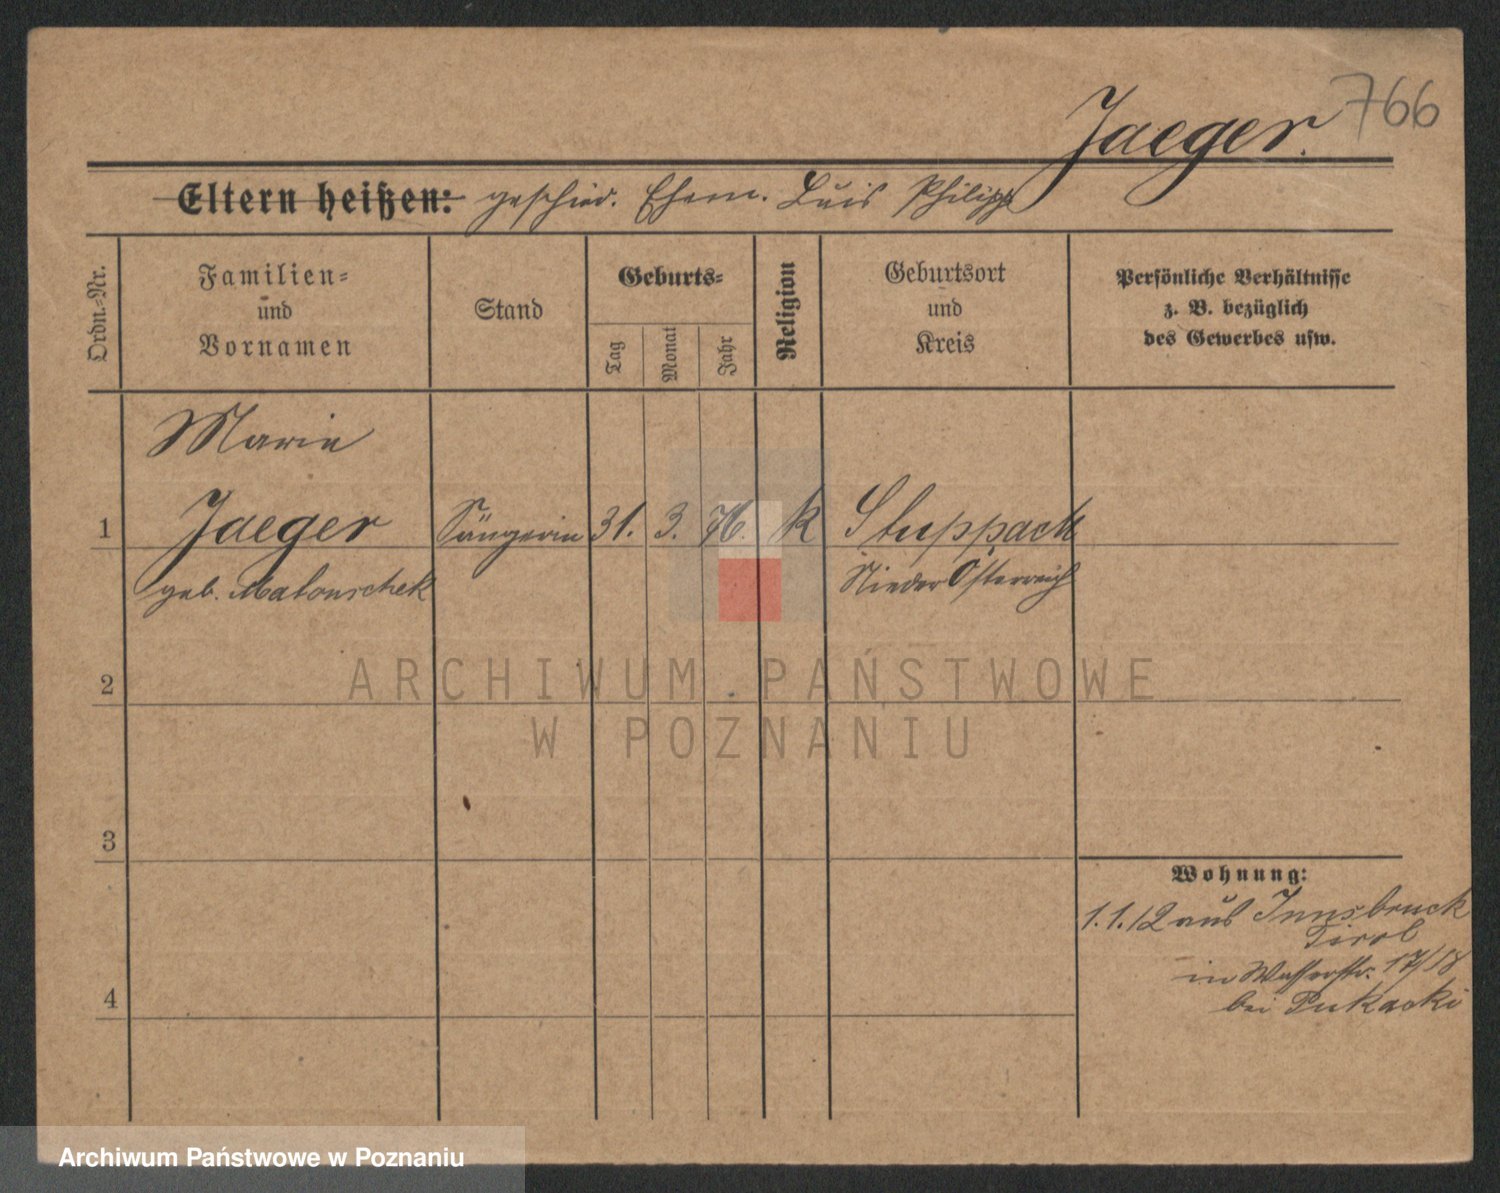 766
Jaeger.
Eltern heißen: geschied. Ehem. Luis Philipp
Ordn.-Nr.
Familien-
und
Vornamen
Stand
Geburts-
Tag
Monat
Jahr
Religion
Geburtsort
und
Kreis
Persönliche Verhältnisse
z. B. bezüglich
des Gewerbes usw.
Marie
1 Jaeger Sängerin 31. 3. 76. k Stuppach
geb. Matouschek Nieder Österreich
ARCHIWUM PAŃSTWOWE
2
W POZNANIU
3
Wohnung:
1.1.12 aus Innsbruck
Tirol
in Wasserstr. 17/18
4
bei Pukacki
Archiwum Państwowe w Poznaniu